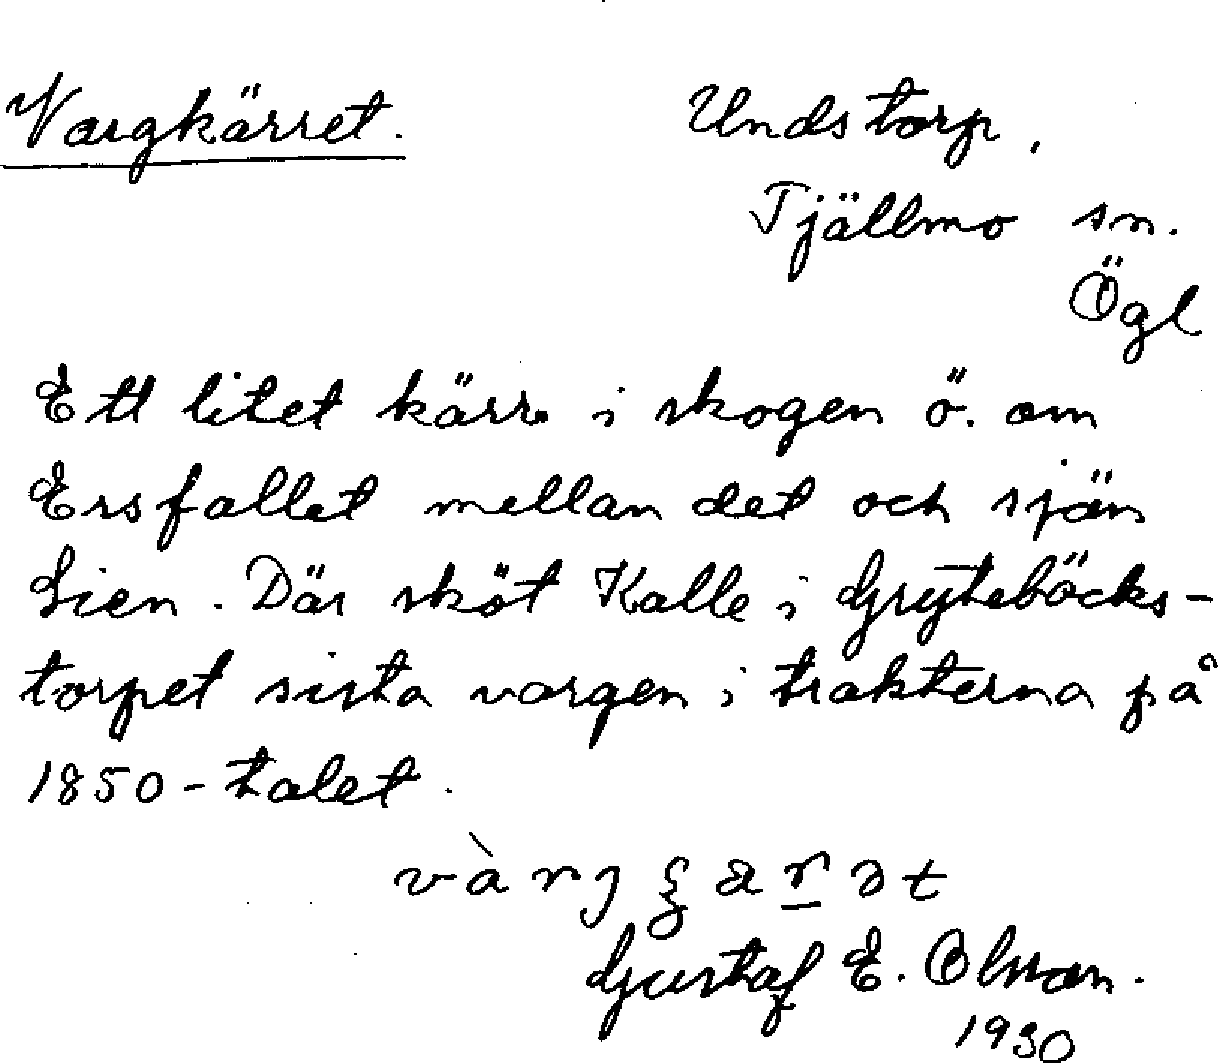 Vargkärret. Undstorp.
Tjällmo sn.
Ögl
Ett litet kärr i skogen ö. om
Ersfallet mellan det och sjön
Lien. Där sköt Kalle i Gryteböcks-
torpet sista vargen i trakterna på
1850-talet.
vàrj ꞩæṟət
Gustaf E. Olsson.
1930